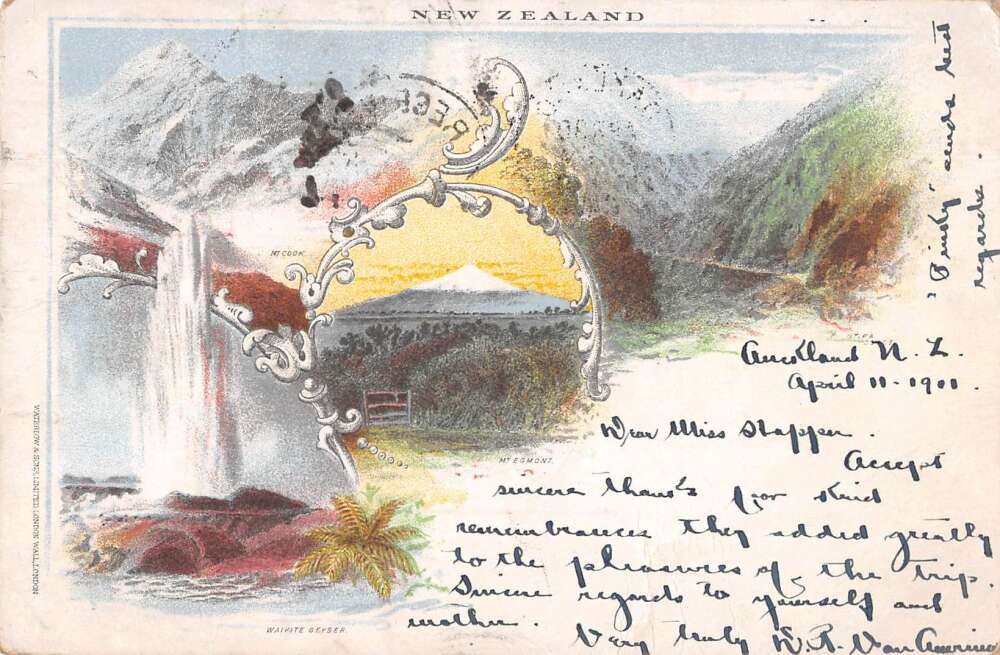 NEW ZEALAND
REC
MT COOK.
MT EGMONT.
WAIKITE GEYSER.
WATERLOW & SONS, LIMITED, LONDON WALL, LONDON
Auckland N. Z.
April 11 - 1901.
Dear Miss Slapper.
Accept
sincere thanks for kind
remembrances they added greatly
to the pleasures of the trip.
Sincere regards to yourself and
mother.
Very truly W. A. Van
sends best
regards.